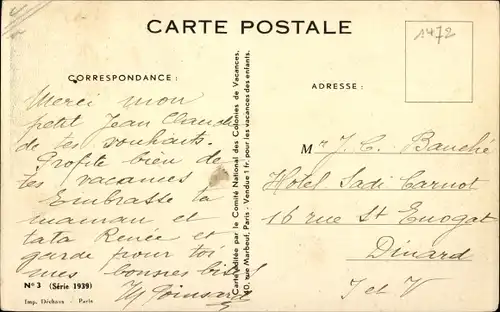 CARTE POSTALE
1472
CORRESPONDANCE :
Merci mon
petit Jean Claude
de tes souhaits.
Profite bien de
tes vacances
Embrasse ta
maman et
tata Renée et
garde pour toi
mes bonnes bises
N° 3 (Série 1939)
Imp. Déchaux - Paris
Carte éditée par le Comité National des Colonies de Vacances,
40, rue Marbeuf, Paris - Vendue 1 fr. pour les vacances des enfants.
ADRESSE :
Mr J. C. Bauché
Hotel Sadi Carnot
16 rue St Enogat
Dinard
I et V